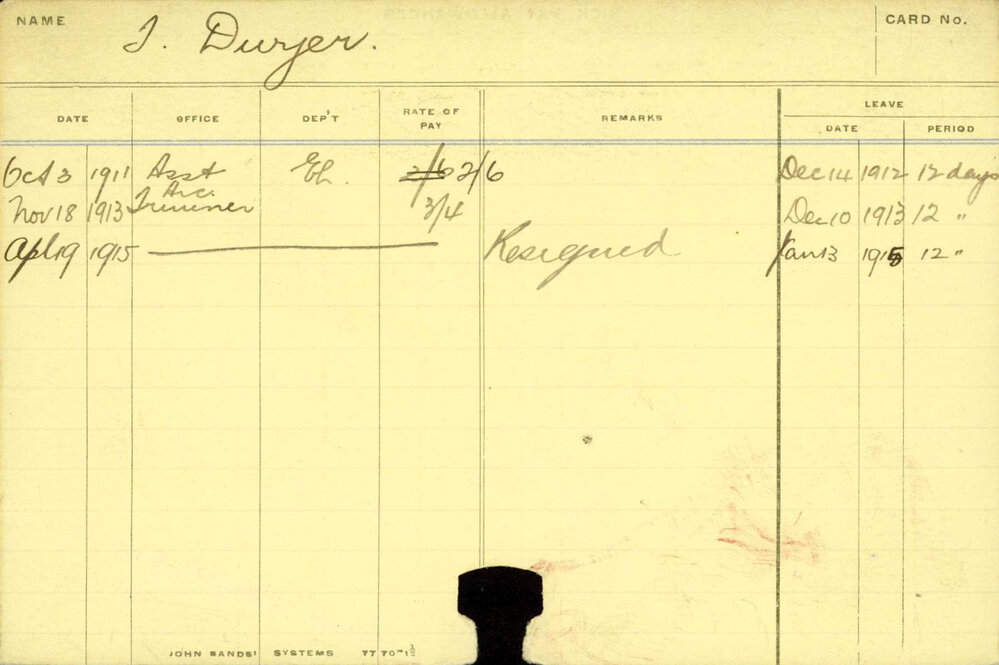 NAME J. Dwyer. CARD No.
LEAVE
DATE OFFICE DEP'T RATE OF PAY REMARKS DATE PERIOD
Oct 3 1911 Asst El. 2/6 2/6 Dec 14 1912 12 days
Arc.
Nov 18 1913 Trimmer 3/4 Dec 10 1913 12 "
Apl 19 1915 Resigned Jan 13 1915 12 "
JOHN SANDS' SYSTEMS 77 70